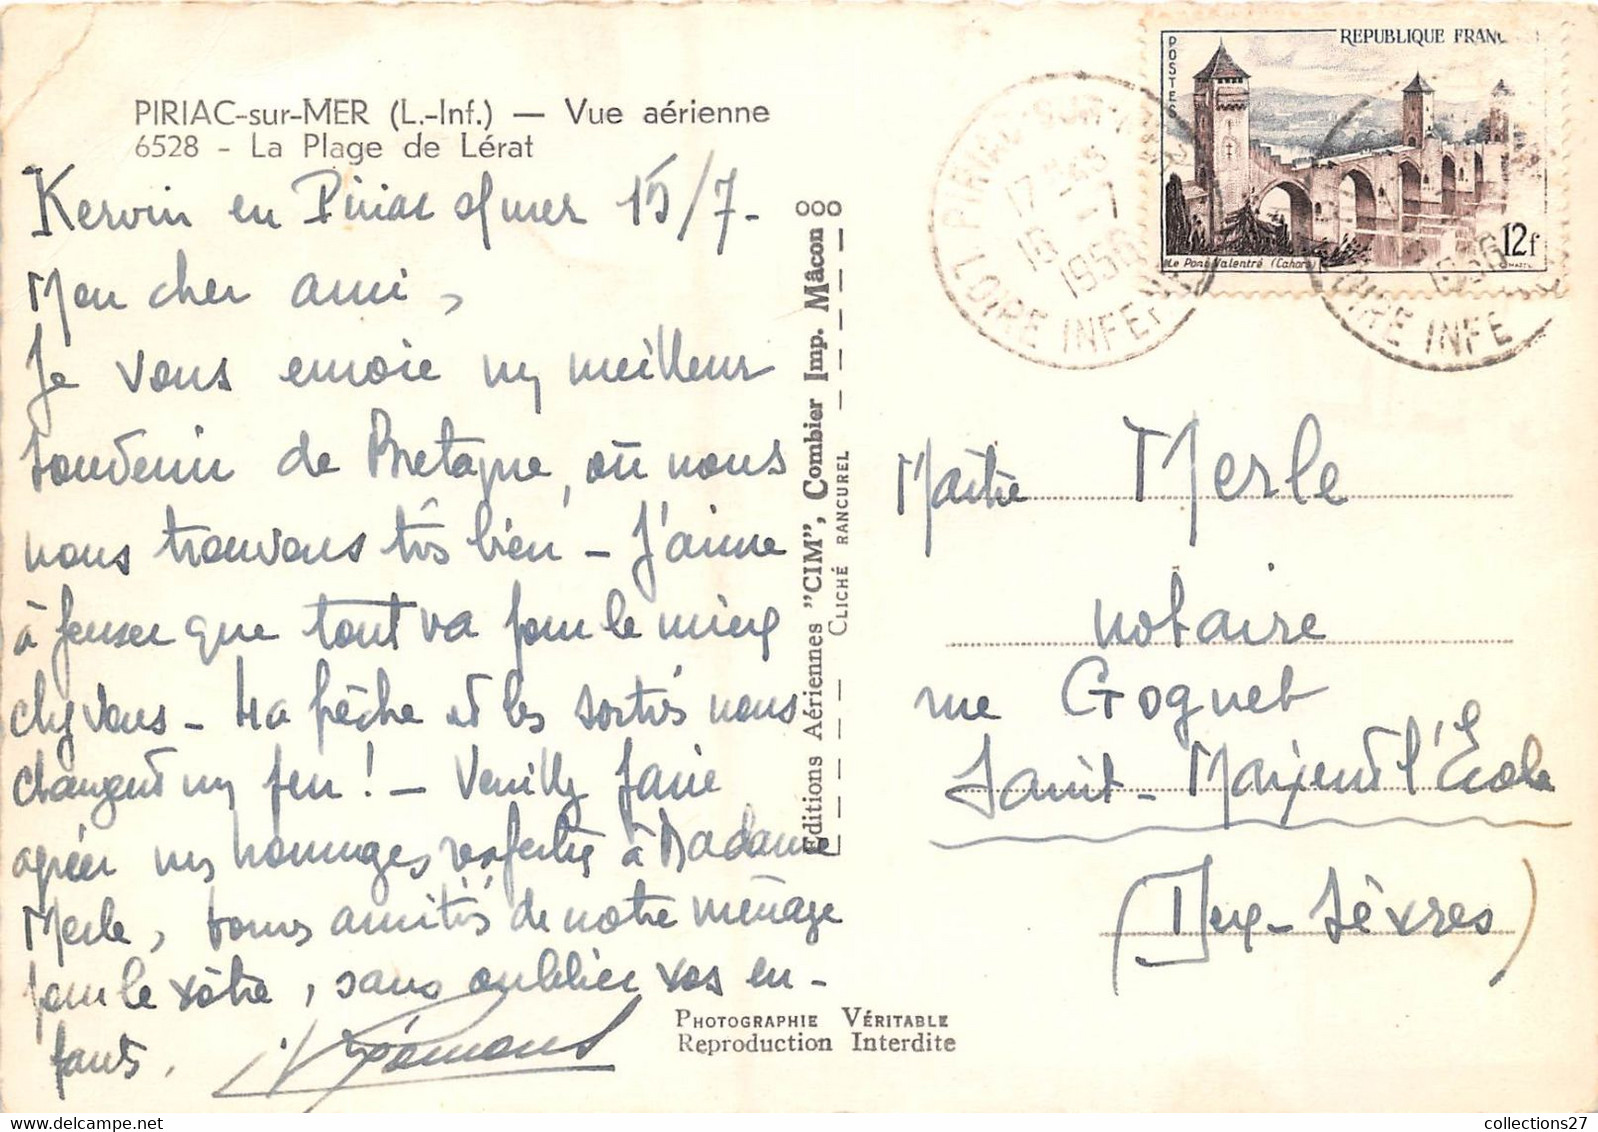 PIRIAC-sur-MER (L.-Inf.) — Vue aérienne
6528 - La Plage de Lérat
Kervin en Piriac s/mer 15/7-
Mon cher ami,
Je vous envoie un meilleur
souvenir de Bretagne, où nous
nous trouvons très bien - J'aime
à penser que tout va pour le mieux
chez vous - La pêche et les sorties nous
changent un peu ! - Veuillez faire
agréer mes hommages respectueux à Madame
Merle, bonnes amitiés de notre ménage
pour le vôtre, sans oublier vos en-
fants.
Editions Aériennes "CIM", Combier Imp. Mâcon
CLICHÉ RANCUREL
PHOTOGRAPHIE VÉRITABLE
Reproduction Interdite
REPUBLIQUE FRANC
POSTES
Le Pont Valentré (Cahors)
12f
PIRIAC-SUR-MER
17
16 - 7
1956
LOIRE INFER
1956
LOIRE INFE
Maître Merle
notaire
rue Gognet
Saint-Maixent l'École
(Deux-Sèvres)
collections27